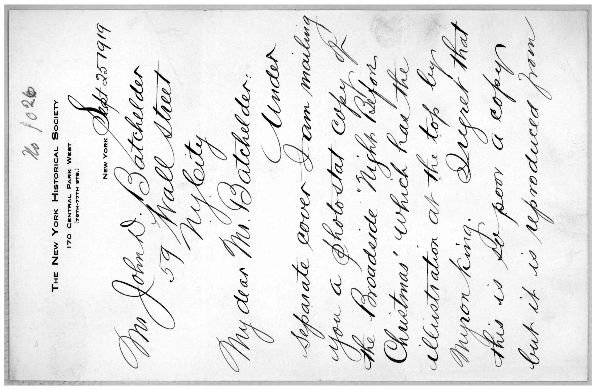 No 1026
THE NEW YORK HISTORICAL SOCIETY
170 CENTRAL PARK WEST
(76TH-77TH STS.)
NEW YORK Sept 25 1919
Mr John D. Batchelder
59 Wall Street
Ny City
My dear Mr. Batchelder:
Under
separate cover I am mailing
you a photostat copy of
the Broadside "Night Before
Christmas" which has the
illustration at the top by
Myron King. I regret that
this is so poor a copy
but it is reproduced from